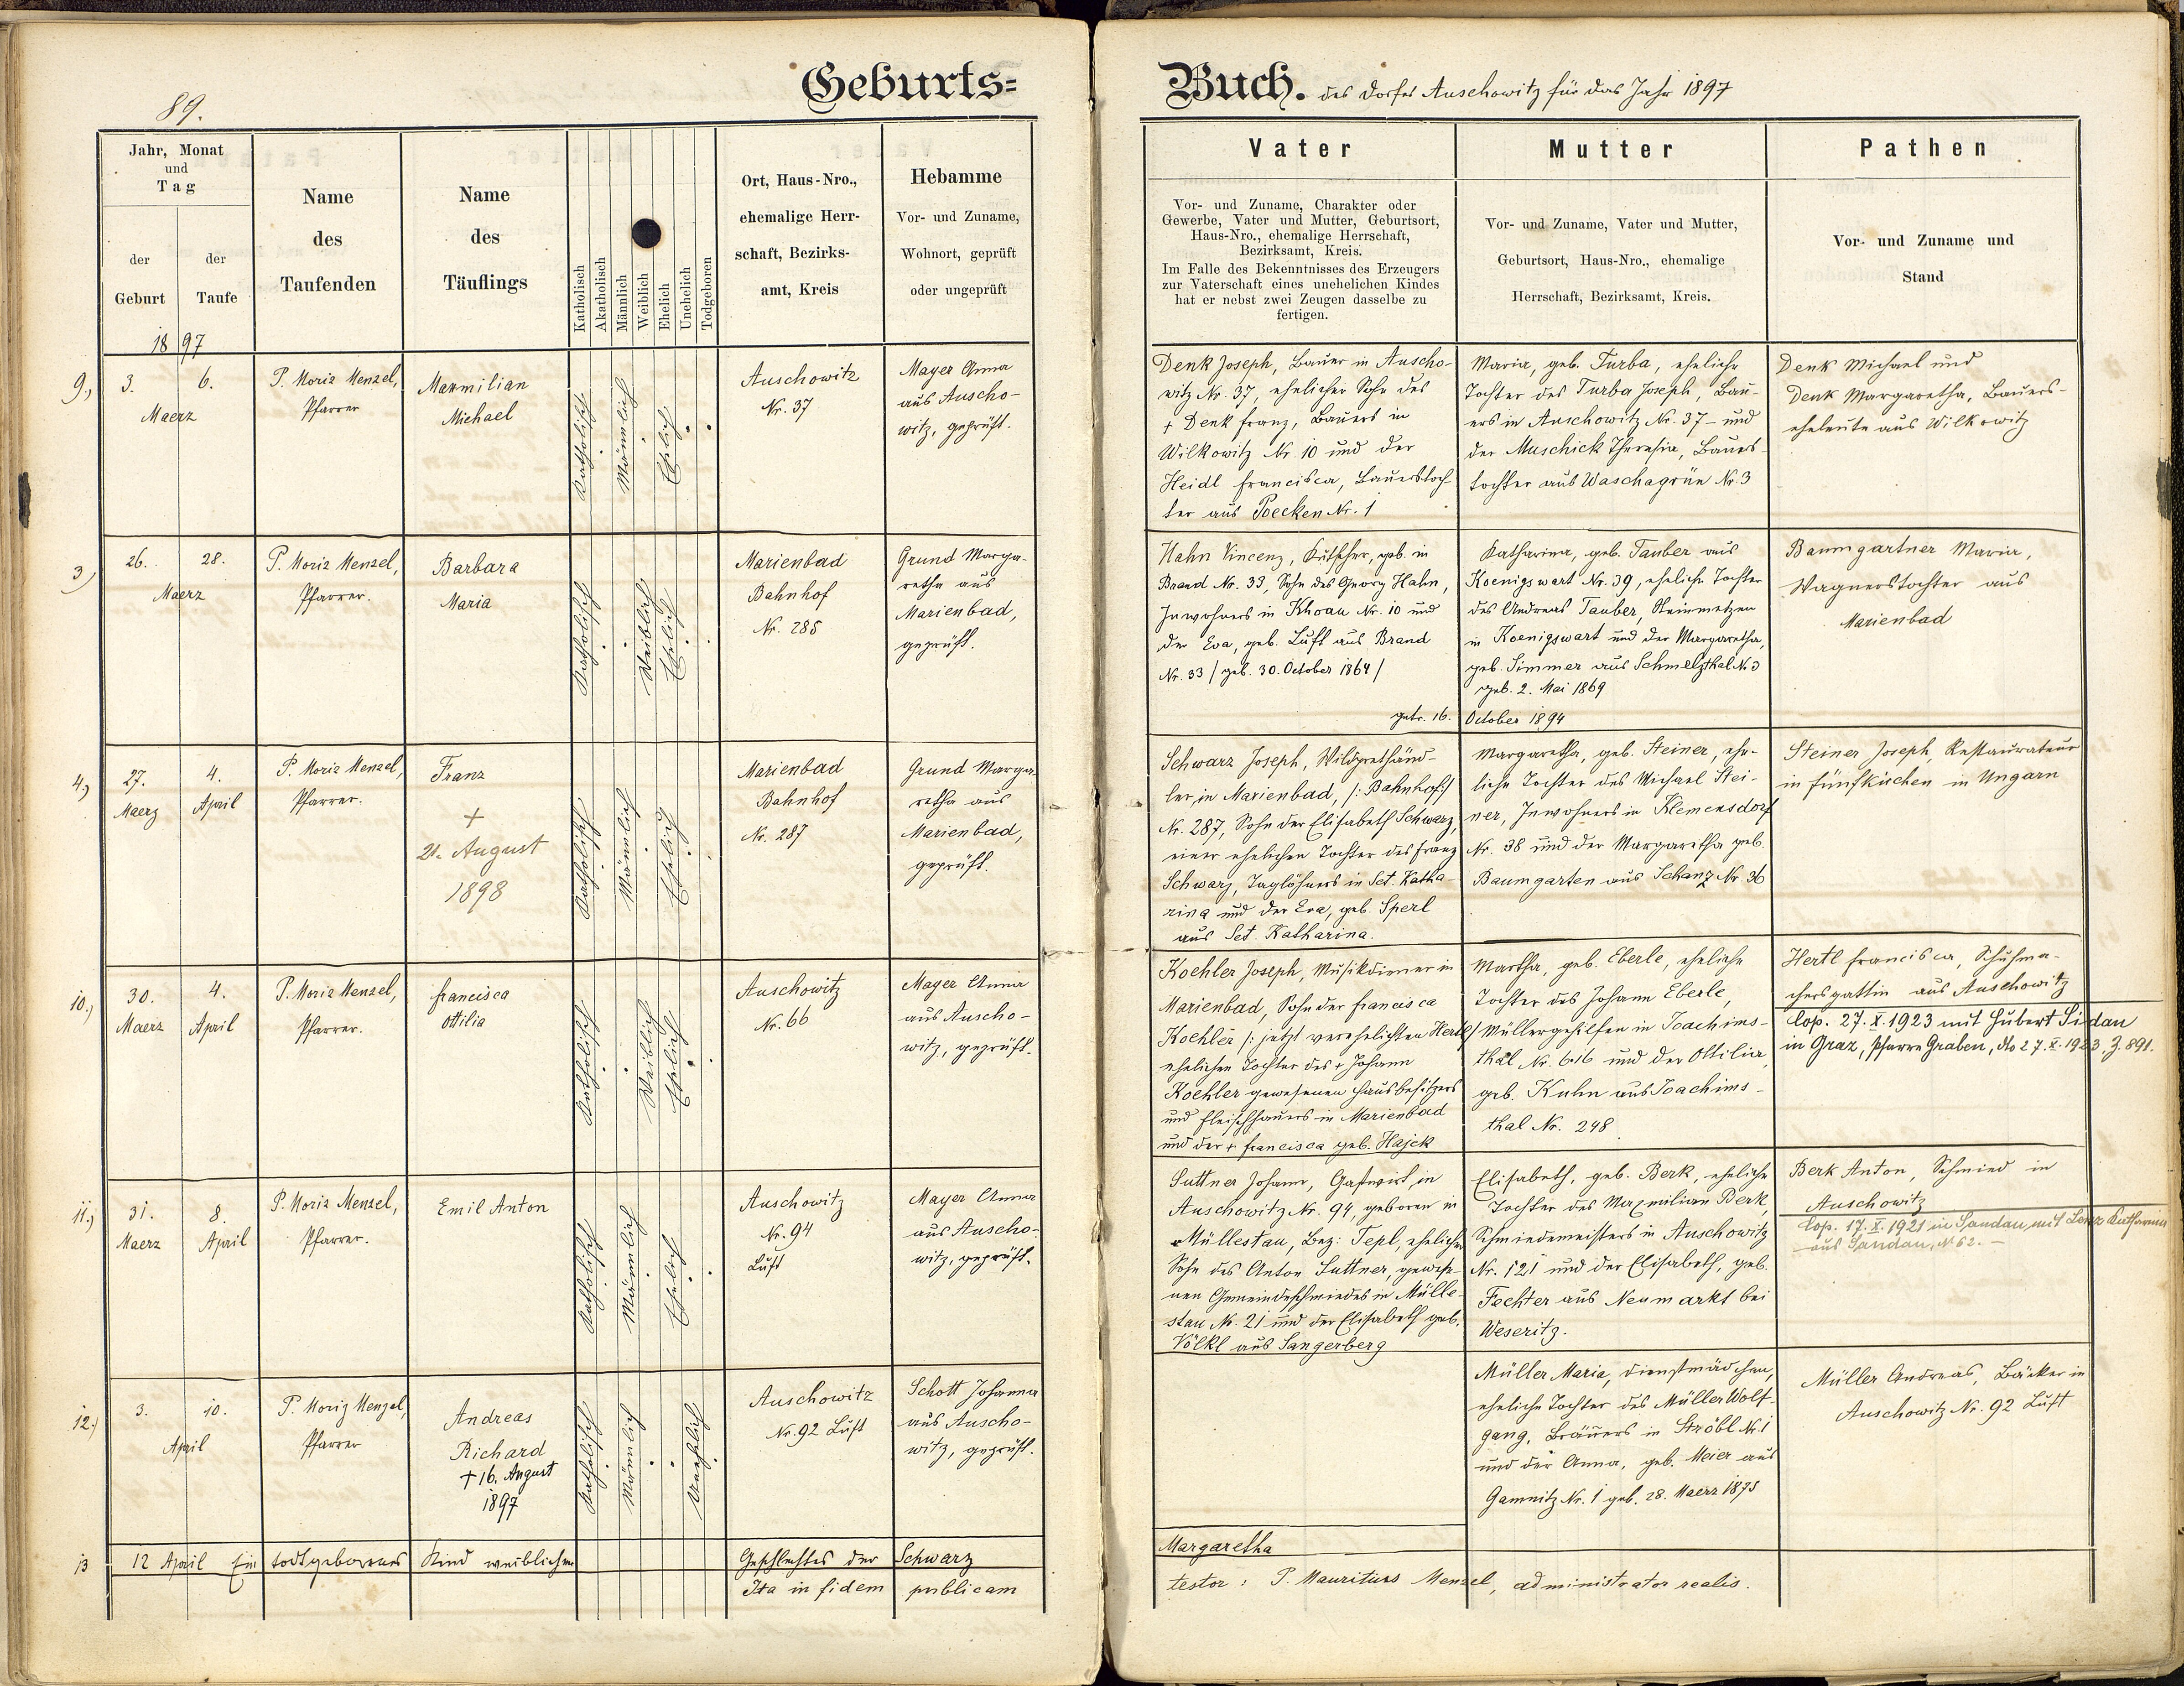 89.
Geburts=
Buch. des Dorfes Auschowitz für das Jahr 1897
Jahr, Monat
und
Tag
der
Geburt
der
Taufe
Name
des
Taufenden
Name
des
Täuflings
Katholisch
Akatholisch
Männlich
Weiblich
Ehelich
Unehelich
Todgeboren
Ort, Haus-Nro.,
ehemalige Herr-
schaft, Bezirks-
amt, Kreis
Hebamme
Vor- und Zuname,
Wohnort, geprüft
oder ungeprüft
Vater
Vor- und Zuname, Charakter oder
Gewerbe, Vater und Mutter, Geburtsort,
Haus-Nro., ehemalige Herrschaft,
Bezirksamt, Kreis.
Im Falle des Bekenntnisses des Erzeugers
zur Vaterschaft eines unehelichen Kindes
hat er nebst zwei Zeugen dasselbe zu
fertigen.
Mutter
Vor- und Zuname, Vater und Mutter,
Geburtsort, Haus-Nro., ehemalige
Herrschaft, Bezirksamt, Kreis.
Pathen
Vor- und Zuname und
Stand
1897
9.)
3.
6.
Maerz
P. Moriz Menzel,
Pfarrer
Maxmilian
Michael
Katholisch
Männlich
Ehelich
Auschowitz
Nr. 37
Mayer Anna
aus Auscho-
witz, geprüft.
Denk Joseph, Bauer in Auscho-
witz Nr. 37, ehelicher Sohn des
+ Denk Franz, Bauers in
Wilkowitz Nr. 10 und der
Heidl Francisca, Bauerstoch
ter aus Poecken Nr. 1
Maria, geb. Turba, eheliche
Tochter des Turba Joseph, Bau-
ers in Auschowitz Nr. 37 - und
der Muschick Theresia, Bauers-
tochter aus Waschagrün Nr. 3
Denk Michael und
Denk Margaretha, Bauers-
eheleute aus Wilkowitz
3)
26.
28.
Maerz
P. Moriz Menzel,
Pfarrer.
Barbara
Maria
Katholisch
Weiblich
Ehelich
Marienbad
Bahnhof
Nr. 285
Grund Marga-
retha aus
Marienbad,
geprüft.
Hahn Vincenz, Kutscher, geb. in
Brand Nr. 33, Sohn des Georg Hahn,
Inwohners in Khoau Nr. 10 und
der Eva, geb. Luft aus Brand
Nr. 33 / geb. 30. October 1864 /
getr. 16. October 1894
Katharina, geb. Tauber aus
Koenigswart Nr. 39, eheliche Tochter
des Andreas Tauber, Steinmetzen
in Koenigswart und der Margaretha,
geb. Simmer aus Schmelzthal Nr. 3
geb. 2. Mai 1869
Baumgartner Maria,
Wagnerstochter aus
Marienbad
4.)
27.
Maerz
4.
April
P. Moriz Menzel,
Pfarrer.
Franz
+
21. August
1898
Katholisch
Männlich
Ehelich
Marienbad
Bahnhof
Nr. 287
Grund Marga-
retha aus
Marienbad,
geprüft.
Schwarz Joseph, Wildprethänd-
ler, in Marienbad, /: Bahnhof :/
Nr. 287, Sohn der Elisabeth Schwarz,
einer ehelichen Tochter des Franz
Schwarz, Taglöhners in Sct. Katha-
rina und der Eva, geb. Sperl
aus Sct. Katharina.
Margaretha, geb. Steiner, ehe-
liche Tochter des Michael Stei-
ner, Inwohners in Klemensdorf
Nr. 38 und der Margaretha geb.
Baumgarten aus Schanz Nr. 36
Steiner Joseph, Restaurateur
in Fünfkirchen in Ungarn
10.)
30.
Maerz
4.
April
P. Moriz Menzel,
Pfarrer.
Francisca
Ottilia
Katholisch
Weiblich
Ehelich
Auschowitz
Nr. 66
Mayer Anna
aus Auscho-
witz, geprüft.
Koehler Joseph, Musikdiener in
Marienbad, Sohn der Francisca
Koehler /: jetzt verehelichten Hertl :/
ehelichen Tochter des + Johann
Koehler gewesenen Hausbesitzers
und Fleischhauers in Marienbad
und der + Francisca geb. Hajek
Martha, geb. Eberle, eheliche
Tochter des Johann Eberle,
Müllergehilfen in Joachims-
thal Nr. 616 und der Ottilia,
geb. Kuhn aus Joachims-
thal Nr. 248
Hertl Francisca, Schuhma-
chersgattin aus Auschowitz
Cop. 27. X. 1923 mit Hubert Sidan
in Graz, Pfarre Graben, dto 27. X. 1923, Z. 891.
11.)
31.
Maerz
8.
April
P. Moriz Menzel,
Pfarrer.
Emil Anton
Katholisch
Männlich
Ehelich
Auschowitz
Nr. 94
Luft
Mayer Anna
aus Auscho-
witz, geprüft.
Suttner Johann, Gastwirt, in
Auschowitz Nr. 94, geboren in
Müllestau, Bez: Tepl, ehelicher
Sohn des Anton Suttner, gewese-
nen Gemeindeschmiedes in Mülle-
stau Nr. 21 und der Elisabeth geb.
Völkl aus Sangerberg
Elisabeth, geb. Berk, eheliche
Tochter des Maxmilian Berk,
Schmiedemeisters in Auschowitz
Nr. 121 und der Elisabeth, geb.
Fechter aus Neumarkt bei
Weseritz.
Berk Anton, Schmied in
Auschowitz
Cop. 17. X. 1921 in Sandau mit Lenz Katharina
aus Sandau, № 62. -
12.)
3.
10.
April
P. Moriz Menzel,
Pfarrer
Andreas
Richard
+ 16. August
1897
Katholisch
Männlich
Unehelich
Auschowitz
Nr. 92 Luft
Schott Johanna
aus Auscho-
witz, geprüft.
Müller Maria, Dienstmädchen,
eheliche Tochter des Müller Wolf-
gang, Bräuers in Ströbl Nr. 1
und der Anna, geb. Meier aus
Gamnitz Nr. 1 geb. 28. Maerz 1875
Müller Andreas, Bäcker in
Auschowitz Nr. 92 Luft
13
12 April Ein todtgeborenes Kind weiblichen Geschlechtes der Schwarz Margaretha
Ita in fidem publicam testor: P. Mauritius Menzel, administrator realis.